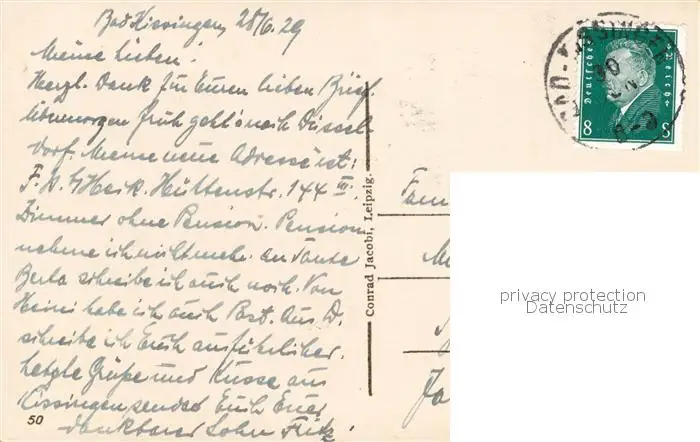 Bad Kissingen, 28/6.29
Meine Lieben!
Herzl. Dank für Euren lieben Brief.
Übermorgen früh geht's nach Düssel-
dorf. Meine neue Adresse ist:
Hüttenstr. 144 III.
Zimmer ohne Pension. Pension
nehme ich nicht mehr. An Tante
Berta schreibe ich auch noch. Von
Heini habe ich auch Post. Aus D.
schreibe ich Euch ausführlicher.
Herzl. Grüße und Küsse aus
Kissingen sendet Euch Euer
dankbarer Sohn Fritz!
50
Conrad Jacobi, Leipzig.
BAD-KISSINGEN
Deutsches Reich
8 8
Fam
privacy protection
Datenschutz